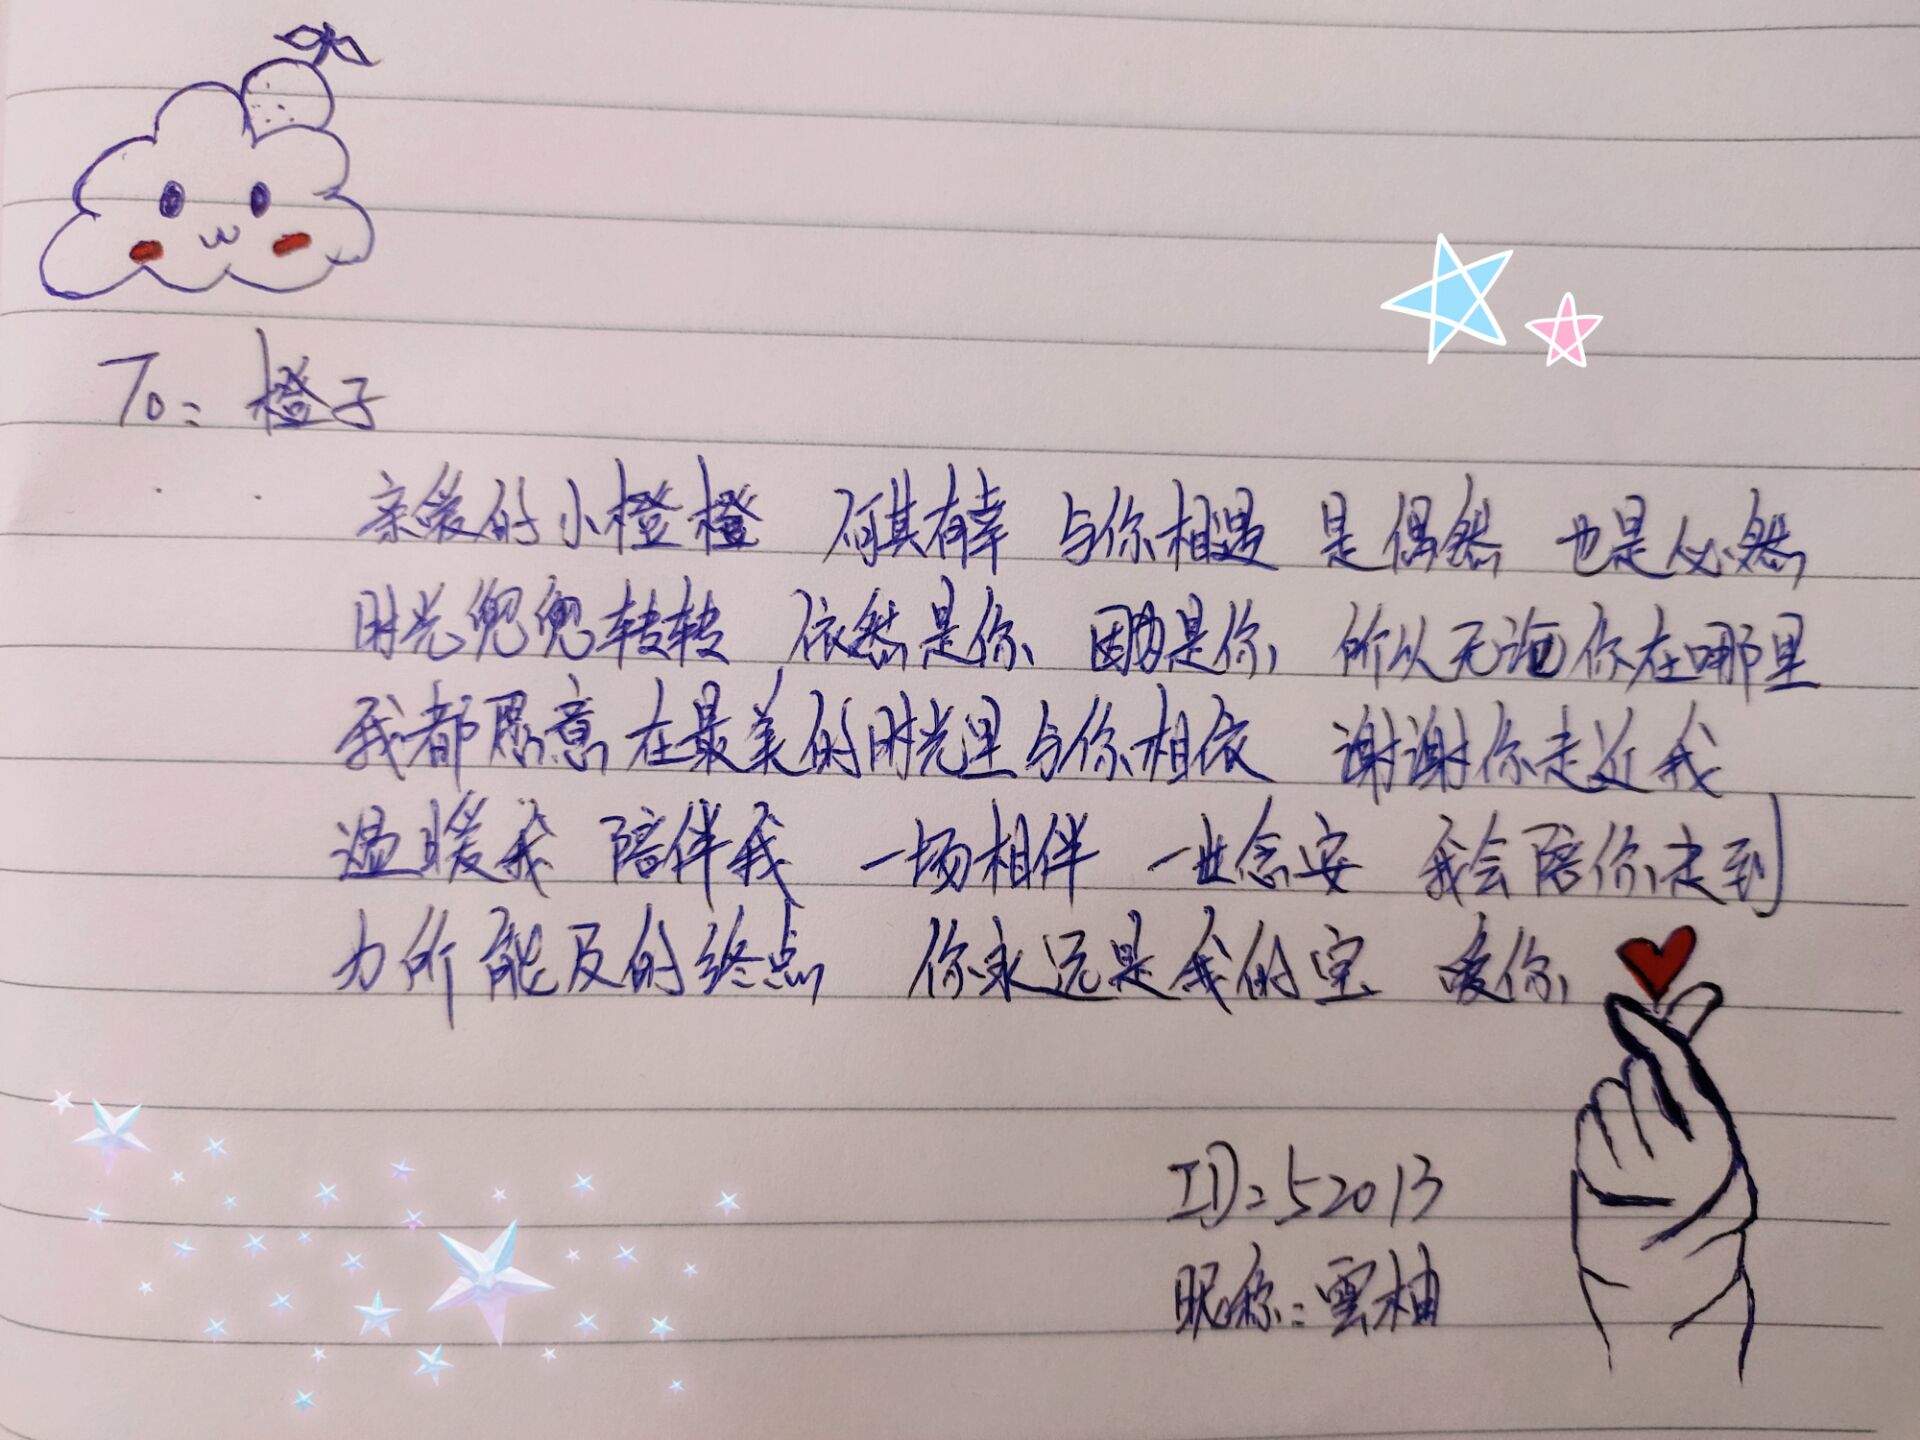 To: 橙子
亲爱的小橙橙 何其有幸 与你相遇 是偶然 也是必然
时光兜兜转转 依然是你 因为是你 所以无论你在哪里
我都愿意在最美的时光里与你相依 谢谢你走近我
温暖我 陪伴我 一场相伴 一世念安 我会陪你走到
力所能及的终点 你永远是我的宝 爱你
ID:52013
昵称:雲柚